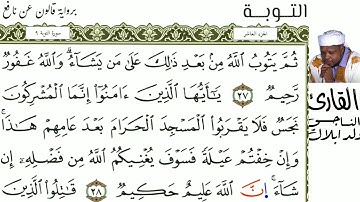 برواية قالون عن نافع
التوبة
سورة التوبة ٩
الجزء العاشر
ثُمَّ يَتُوبُ اللَّهُ مِنۢ بَعْدِ ذَٰلِكَ عَلَىٰ مَنْ يَشَآءُ وَاللَّهُ غَفُورٌ
رَحِيمٌ ٢٧ يَٰٓأَيُّهَا الَّذِينَ ءَامَنُوٓا إِنَّمَا الْمُشْرِكُونَ
نَجَسٌ فَلَا يَقْرَبُوا الْمَسْجِدَ الْحَرَامَ بَعْدَ عَامِهِمْ هَٰذَا
وَإِنْ خِفْتُمْ عَيْلَةً فَسَوْفَ يُغْنِيكُمُ اللَّهُ مِن فَضْلِهِۦٓ إِن
شَآءَ إِنَّ اللَّهَ عَلِيمٌ حَكِيمٌ ٢٨ قَٰتِلُوا الَّذِينَ
القارئ
الناجي
ولد ابلال